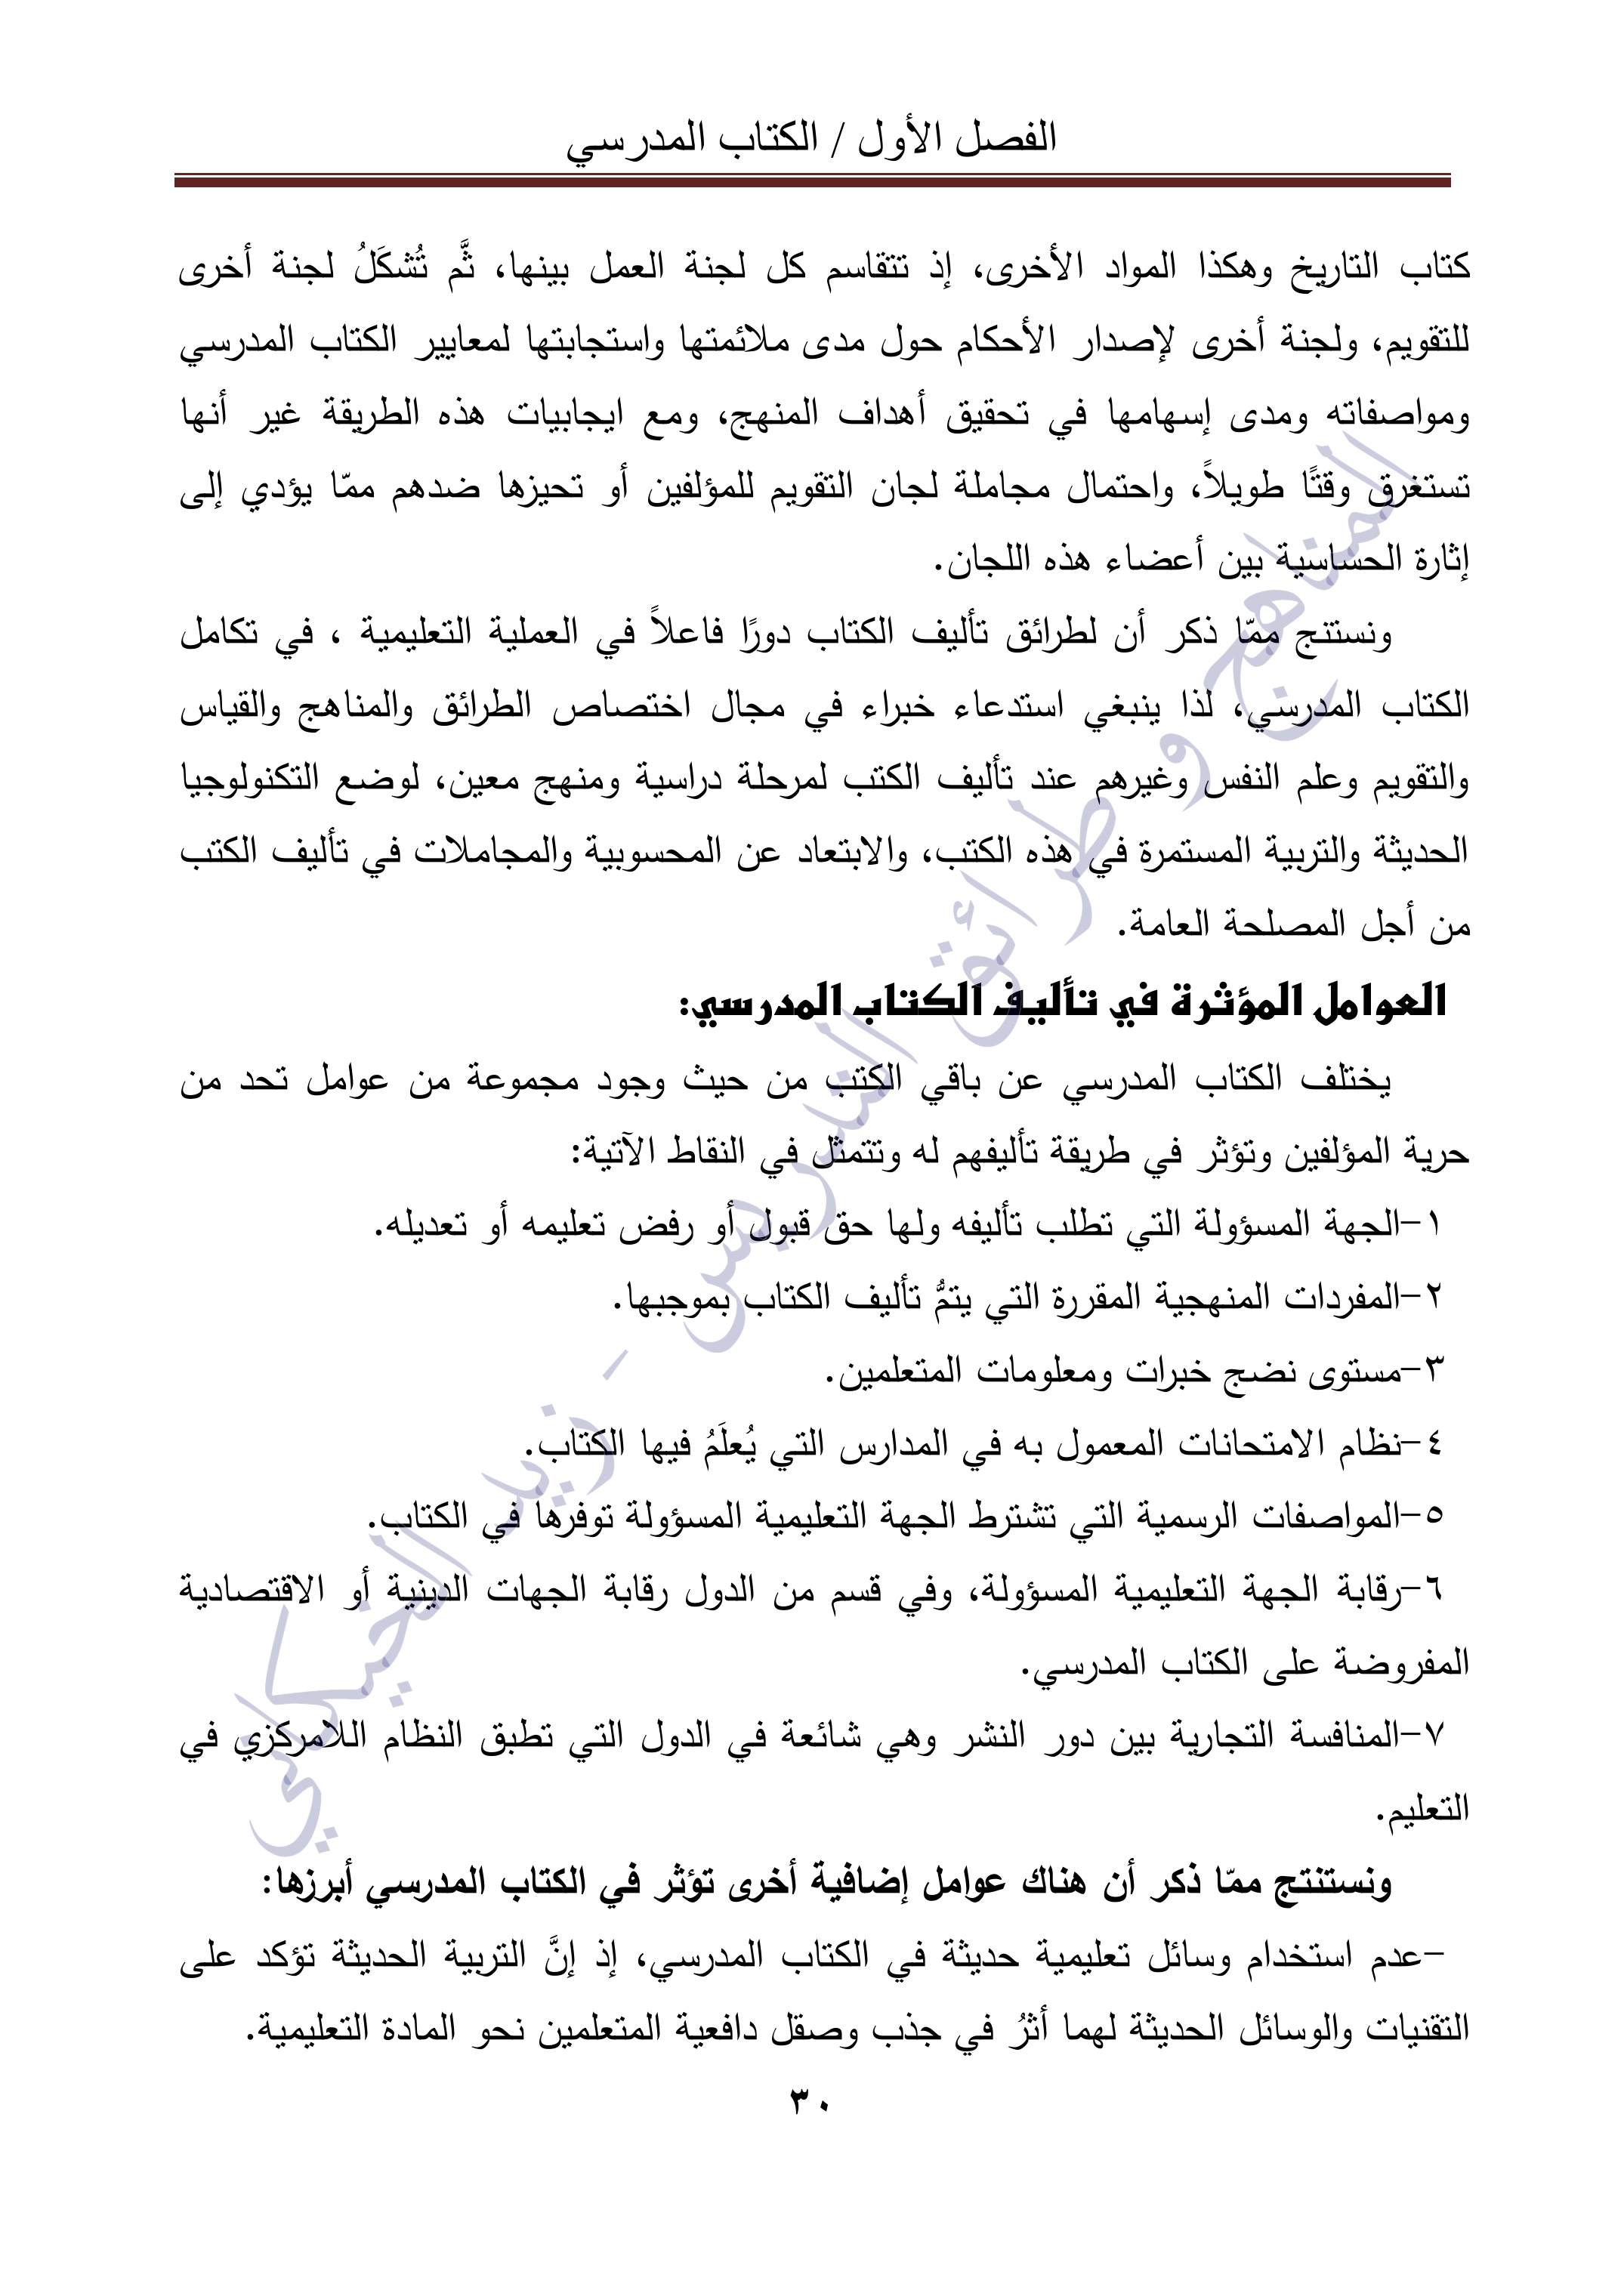 الفصل الأول / الكتاب المدرسي
كتاب التاريخ وهكذا المواد الأخرى، إذ تتقاسم كل لجنة العمل بينها، ثَّم تُشكَلُ لجنة أخرى
للتقويم، ولجنة أخرى لإصدار الأحكام حول مدى ملائمتها واستجابتها لمعايير الكتاب المدرسي
ومواصفاته ومدى إسهامها في تحقيق أهداف المنهج، ومع ايجابيات هذه الطريقة غير أنها
تستغرق وقتًا طويلاً، واحتمال مجاملة لجان التقويم للمؤلفين أو تحيزها ضدهم ممّا يؤدي إلى
إثارة الحساسية بين أعضاء هذه اللجان.
ونستنتج ممّا ذكر أن لطرائق تأليف الكتاب دورًا فاعلاً في العملية التعليمية ، في تكامل
الكتاب المدرسي، لذا ينبغي استدعاء خبراء في مجال اختصاص الطرائق والمناهج والقياس
والتقويم وعلم النفس وغيرهم عند تأليف الكتب لمرحلة دراسية ومنهج معين، لوضع التكنولوجيا
الحديثة والتربية المستمرة في هذه الكتب، والابتعاد عن المحسوبية والمجاملات في تأليف الكتب
من أجل المصلحة العامة.
العوامل المؤثرة في تأليف الكتاب المدرسي:
يختلف الكتاب المدرسي عن باقي الكتب من حيث وجود مجموعة من عوامل تحد من
حرية المؤلفين وتؤثر في طريقة تأليفهم له وتتمثل في النقاط الآتية:
١-الجهة المسؤولة التي تطلب تأليفه ولها حق قبول أو رفض تعليمه أو تعديله.
٢-المفردات المنهجية المقررة التي يتمُّ تأليف الكتاب بموجبها.
٣-مستوى نضج خبرات ومعلومات المتعلمين.
٤-نظام الامتحانات المعمول به في المدارس التي يُعلَمُ فيها الكتاب.
٥-المواصفات الرسمية التي تشترط الجهة التعليمية المسؤولة توفرها في الكتاب.
٦-رقابة الجهة التعليمية المسؤولة، وفي قسم من الدول رقابة الجهات الدينية أو الاقتصادية
المفروضة على الكتاب المدرسي.
٧-المنافسة التجارية بين دور النشر وهي شائعة في الدول التي تطبق النظام اللامركزي في
التعليم.
ونستنتج ممّا ذكر أن هناك عوامل إضافية أخرى تؤثر في الكتاب المدرسي أبرزها:
-عدم استخدام وسائل تعليمية حديثة في الكتاب المدرسي، إذ إنَّ التربية الحديثة تؤكد على
التقنيات والوسائل الحديثة لهما أثرُ في جذب وصقل دافعية المتعلمين نحو المادة التعليمية.
٣٠
المناهج و طرائق التدريس - زيد الخيكاني